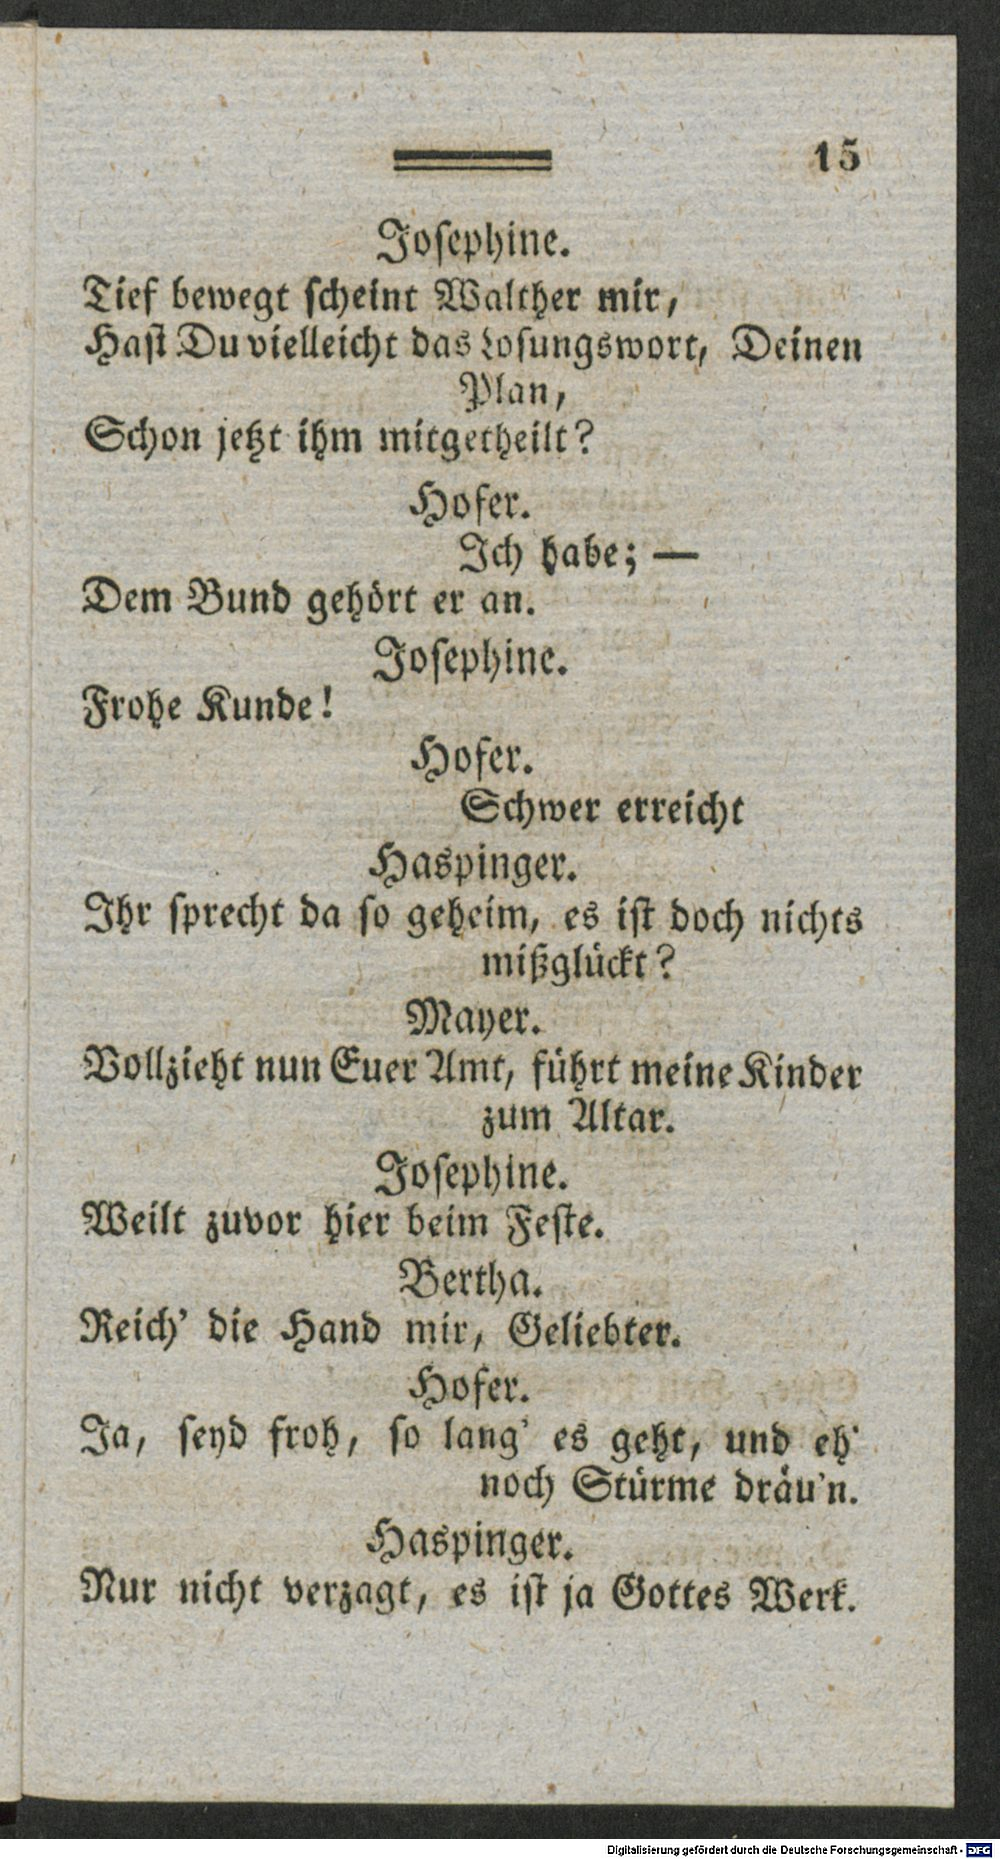 15
Josephine.
Tief bewegt scheint Walther mir,
Hast Du vielleicht das Losungswort, Deinen
Plan,
Schon jetzt ihm mitgetheilt?
Hofer.
Ich habe; —
Dem Bund gehört er an.
Josephine.
Frohe Kunde!
Hofer.
Schwer erreicht
Haspinger.
Ihr sprecht da so geheim, es ist doch nichts
mißglückt?
Mayer.
Vollzieht nun Euer Amt, führt meine Kinder
zum Altar.
Josephine.
Weilt zuvor hier beim Feste.
Bertha.
Reich' die Hand mir, Geliebter.
Hofer.
Ja, seyd froh, so lang' es geht, und eh'
noch Stürme dräu'n.
Haspinger.
Nur nicht verzagt, es ist ja Gottes Werk.
Digitalisierung gefördert durch die Deutsche Forschungsgemeinschaft - DFG